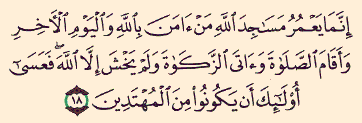 إِنَّمَا يَعْمُرُ مَسَٰجِدَ ٱللَّهِ مَنْ ءَامَنَ بِٱللَّهِ وَٱلْيَوْمِ ٱلْءَاخِرِ
وَأَقَامَ ٱلصَّلَوٰةَ وَءَاتَى ٱلزَّكَوٰةَ وَلَمْ يَخْشَ إِلَّا ٱللَّهَ ۖ فَعَسَىٰٓ
أُو۟لَٰٓئِكَ أَن يَكُونُوا۟ مِنَ ٱلْمُهْتَدِينَ ١٨